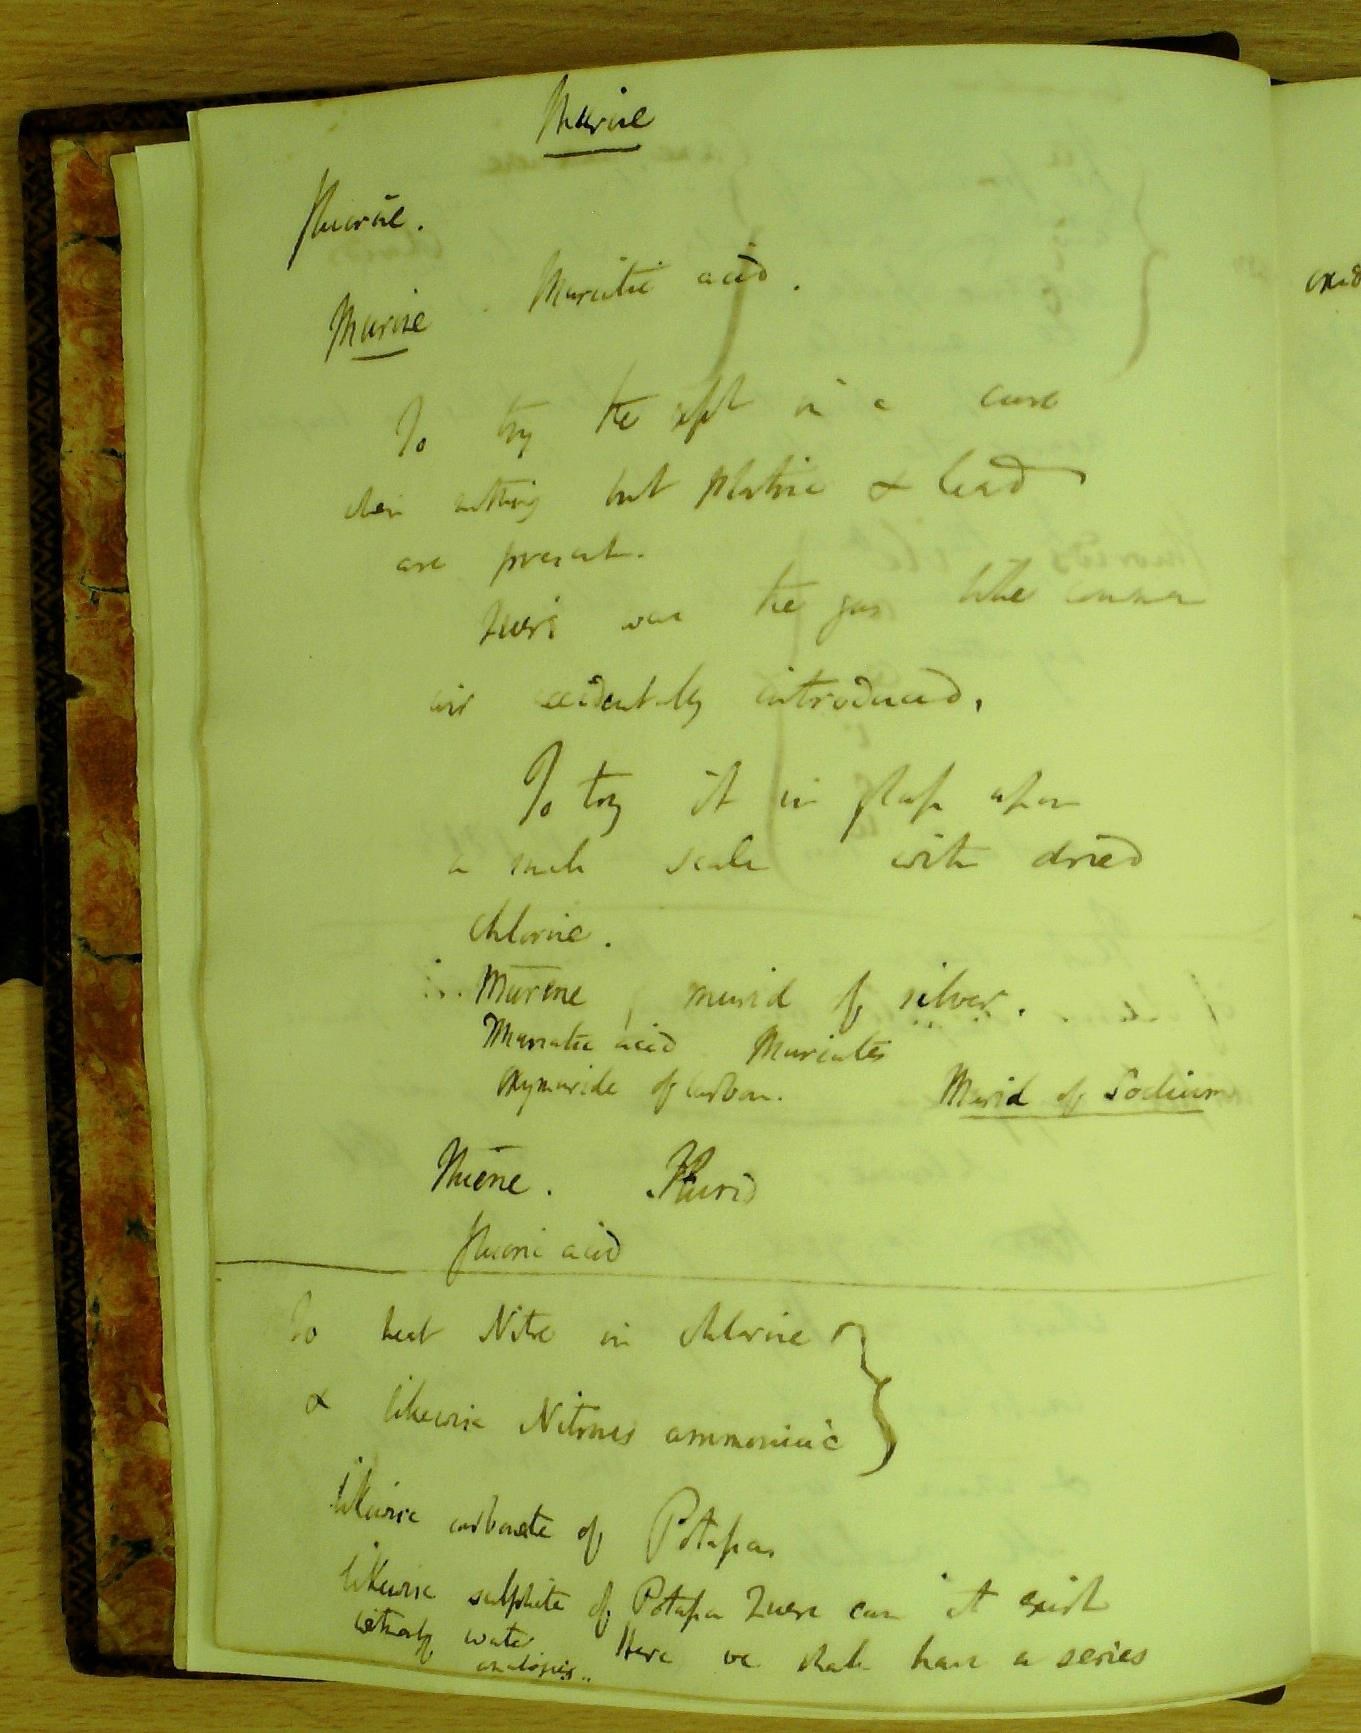 Murine
Fluorine.
Muriatic acid.
Murine
To try the expt in a case
when nothing but platina & lead
are present.
Quere was the gas little common
air accidentally introduced.
To try it in glass upon
a small scale with dried
chlorine.
Murene, murid of silver.
Muriatic acid Muriates
oxymuride of carbon. Murid of Sodium
Fluene. Flurid
fluoric acid
To heat Nitre in chlorine
& likewise Nitrous ammoniac
likewise carbonate of Potassa
likewise sulphite of Potassa Quere can it exist
without water Here we shall have a series
analogies..
exis